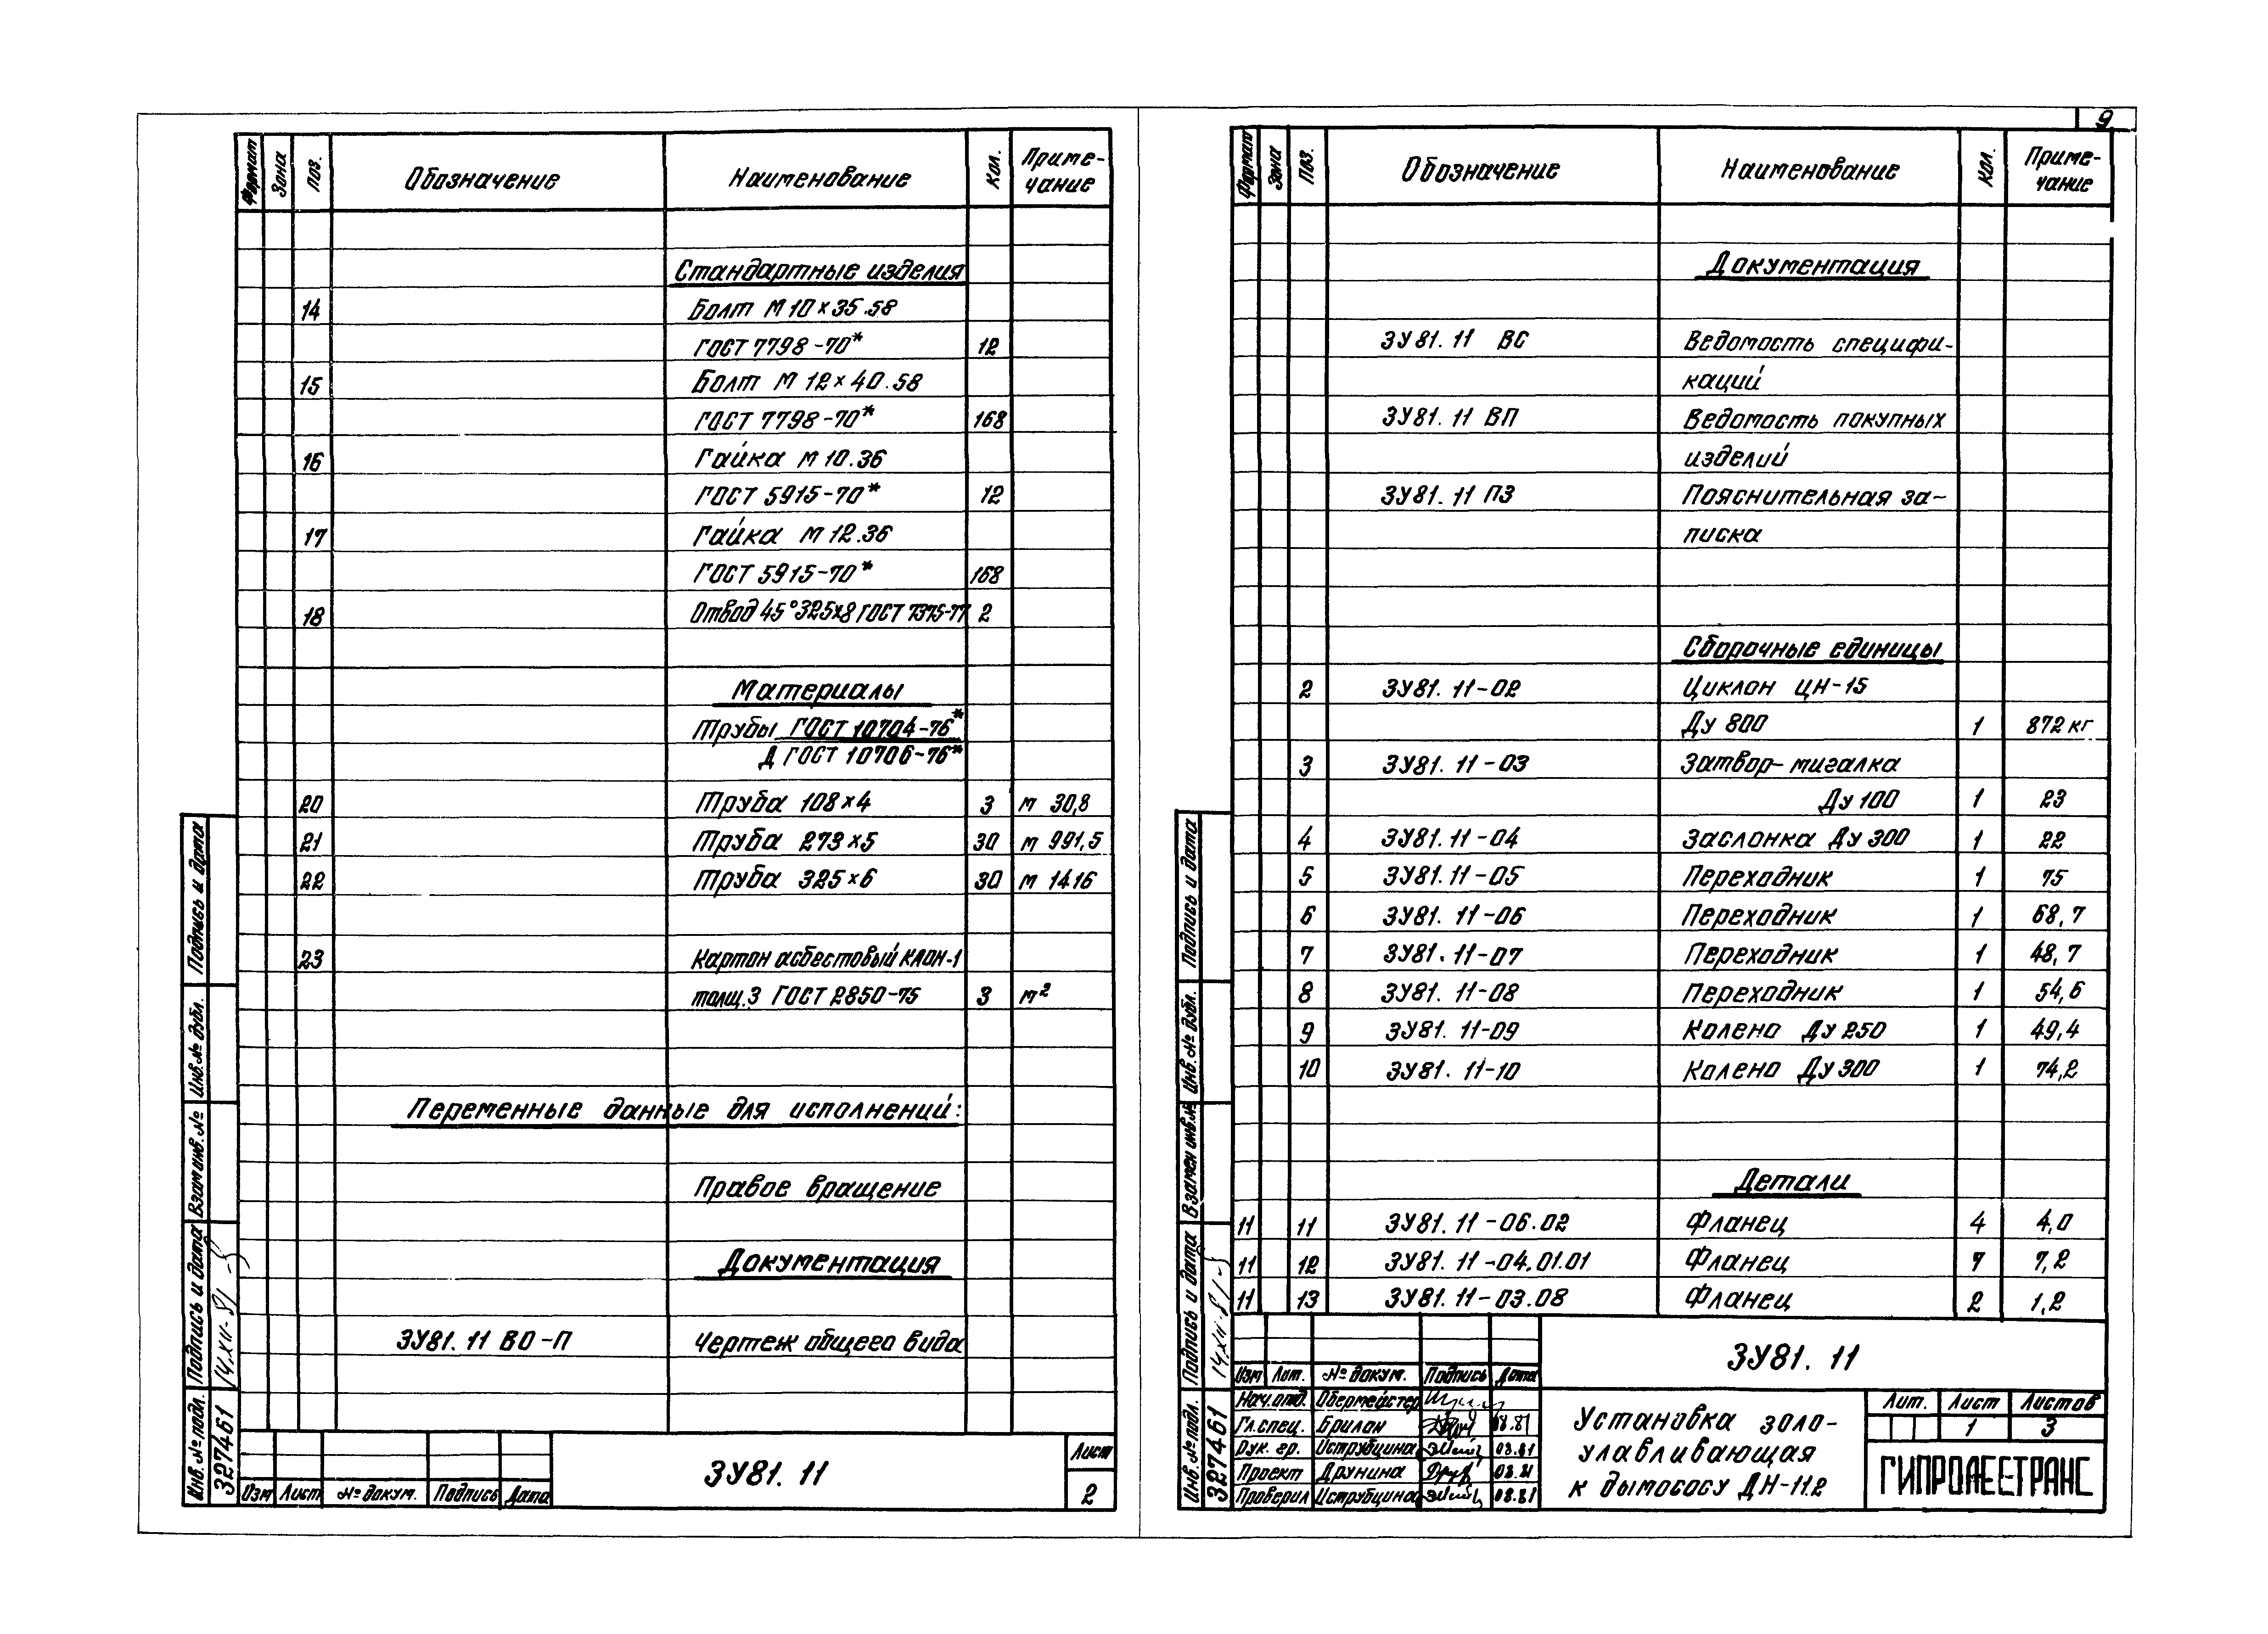 Формат Зона Поз. Обозначение Наименование Кол. Приме-
чание
Стандартные изделия
14 Болт М 10 × 35.58
ГОСТ 7798-70* 12
15 Болт М 12 × 40.58
ГОСТ 7798-70* 168
16 Гайка М 10.36
ГОСТ 5915-70* 12
17 Гайка М 12.36
ГОСТ 5915-70* 168
18 Отвод 45° 325×8 ГОСТ 7375-77 2
Материалы
Трубы ГОСТ 10704-76*
Д ГОСТ 10706-76*
20 Труба 108×4 3 м 30,8
21 Труба 273×5 30 м 991,5
22 Труба 325×6 30 м 1416
23 Картон асбестовый КАОН-1
толщ.3 ГОСТ 2850-75 3 м²
Переменные данные для исполнений:
Правое вращение
Документация
ЗУ81.11 ВО-П Чертеж общего вида
Изм Лист № докум. Подпись Дата
ЗУ81.11
Лист
2
Подпись и дата
Инв. № дубл.
Взам инв. №
Подпись и дата
14.XII-81
Инв. № подл.
327461
9
Формат Зона Поз. Обозначение Наименование Кол. Приме-
чание
Документация
ЗУ81.11 ВС Ведомость специфи-
каций
ЗУ81.11 ВП Ведомость покупных
изделий
ЗУ81.11 ПЗ Пояснительная за-
писка
Сборочные единицы
2 ЗУ81.11-02 Циклон ЦН-15
Ду 800 1 872 кг
3 ЗУ81.11-03 Затвор-мигалка
Ду 100 1 23
4 ЗУ81.11-04 Заслонка Ду 300 1 22
5 ЗУ81.11-05 Переходник 1 75
6 ЗУ81.11-06 Переходник 1 68,7
7 ЗУ81.11-07 Переходник 1 48,7
8 ЗУ81.11-08 Переходник 1 54,6
9 ЗУ81.11-09 Колено Ду 250 1 49,4
10 ЗУ81.11-10 Колено Ду 300 1 74,2
Детали
11 11 ЗУ81.11-06.02 Фланец 4 4,0
11 12 ЗУ81.11-04.01.01 Фланец 7 7,2
11 13 ЗУ81.11-03.08 Фланец 2 1,2
Изм Лит. № докум. Подпись Дата
Нач.отд. Обермейстер
Гл.спец. Брилон 08.81
Рук. гр. Иструбцина 08.81
Проект Друнина 08.81
Проверил Иструбцина 08.81
ЗУ81.11
Установка золо-
улавливающая
к дымососу ДН-11.2
Лит. Лист Листов
1 3
ГИПРОЛЕСТРАНС
Подпись и дата
Инв. № дубл.
Взамен инв.№
Подпись и дата
14.XII-81
Инв. № подл.
327461